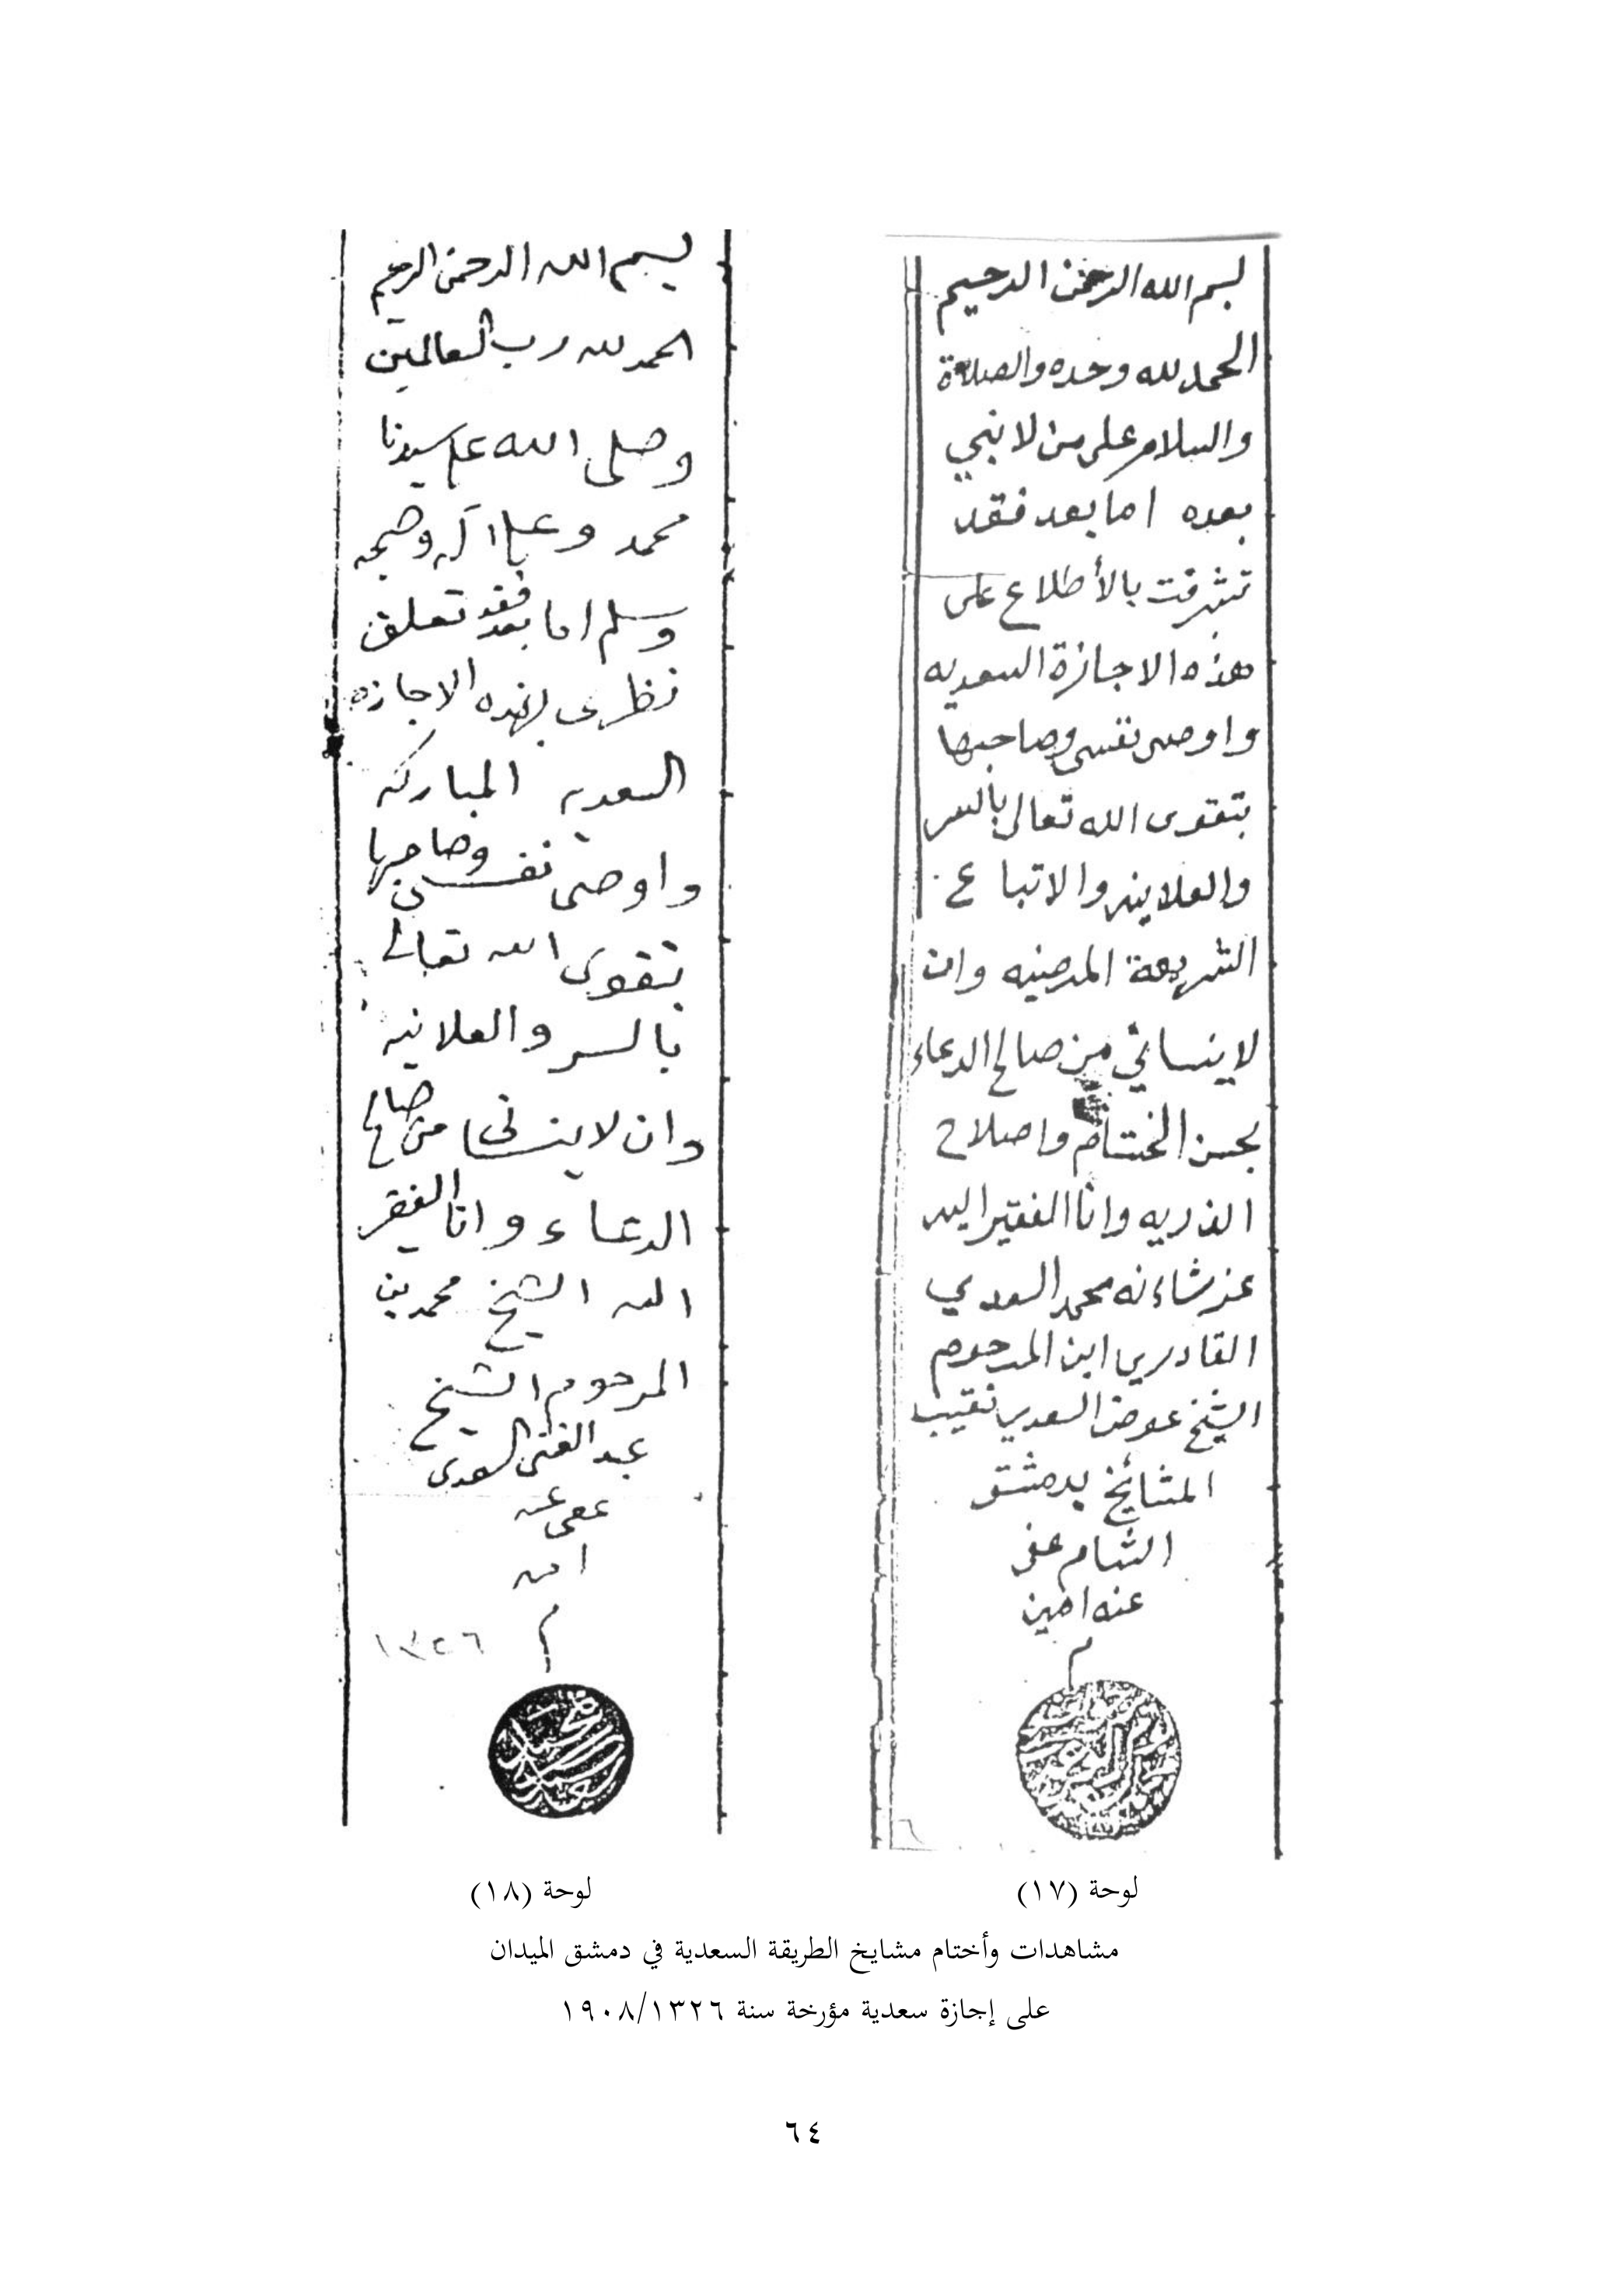 بسم الله الرحمن الرحيم
الحمد لله وحده والصلاة
والسلام على من لا نبي
بعده اما بعد فقد
تشرفت بالأطلاع على
هذه الاجازة السعديه
واوصى نفسى وصاحبها
بتقوى الله تعالى بالسر
والعلانيه والاتباع
الشريعة المرضيه وان
لا ينساني من صالح الدعاء
بحسن الختام واصلاح
الذريه وانا الفقير اليه
عز شاءنه محمد السعدي
القادري ابن المرحوم
الشيخ عوض السعدي نقيب
المشائخ بدمشق
الشام عفى
عنه امين
م
لوحة (١٧)
بسم الله الرحمن الرحيم
الحمد لله رب العالمين
وصلى الله على سيدنا
محمد وعلى اله وصحبه
وسلم اما بعد فقد تعلق
نظرى بهذه الاجازه
السعديه المباركه
واوصى نفسى وصاحبها
بتقوى الله تعالى
بالسر والعلانيه
وان لا ينسانى من صالح
الدعاء وانا الفقير
الله الشيخ محمد بن
المرحوم الشيخ
عبد الغنى السعدى
عفى عنه
امين
م
١٣٢٦
لوحة (١٨)
مشاهدات وأختام مشايخ الطريقة السعدية في دمشق الميدان
على إجازة سعدية مؤرخة سنة ١٩٠٨/١٣٢٦
٦٤